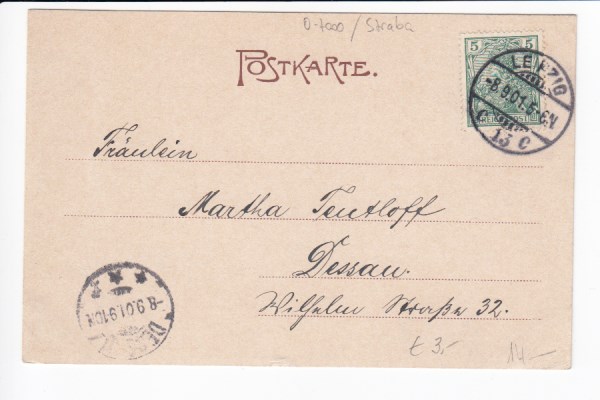 O-7000 / Straba
POSTKARTE.
5 5
LEIPZIG
-8.9.01.5-6N.
13 C
Fräulein
Martha Tentloff
Dessau.
Wilhelm Straße 32.
-8.9.01.9-10N.
£ 3,-
14,-